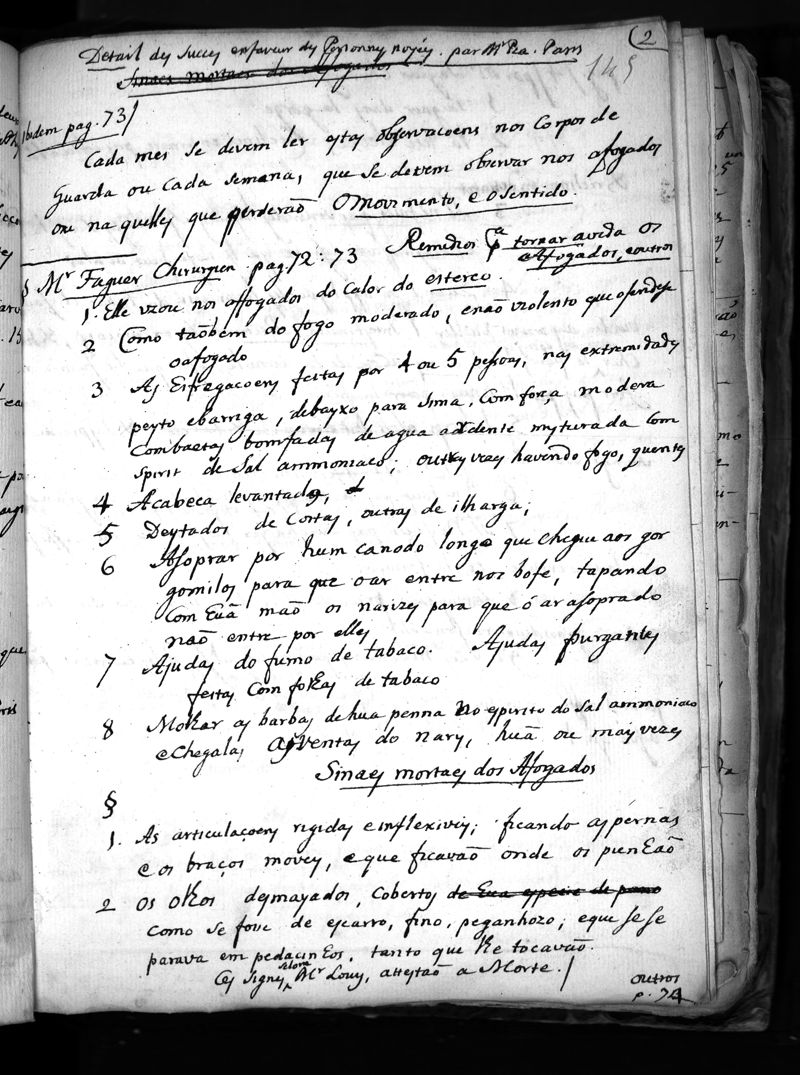 (2
Detail des Succes enfaveur des Personnes noyées. par Mr Pia. Paris
Sinaes mortaes dos Afogados
145
Ibidem pag. 73)
Cada mes se devem ler estas observacoens nos Corpos de
Guarda ou Cada semana, que se devem observar nos afogados
ou na quelles que perderaõ O Movimento, e o sentido.
Remedios pa tornar avida os
Afogados, e outros
§ Mr Faguer Chirurgien pag. 72: 73
1. Elle uzou nos affogados do Calor do esterco.
2 Como taõbem do fogo moderado, enaõ violento que ofendese
oafogado
3 As Esfregacoens feitas por 4 ou 5 pessoas, nas extremidades
peyto ebarriga, debayxo para sima, Com força modera
Combaetas borrifadas de agua ardente mysturada Com
spirit de Sal ammoniaco; outras vezes havendo fogo, quentes
4 Acabeca levantada,
5 Deytados de Costas, outras de ilharga;
6 Asoprar por hum canodo longo que chegue aos gor
gomilos para que oar entre nos bofe, tapando
Com Euã maõ os narizes para que ó ar asoprado
naõ entre por elles
7 Ajudas do fumo de tabaco. Ajudas purgantes
feitas Com folhas de tabaco
8 Molhar as barbas dehua penna No espirito do Sal ammoniaco
eChegalas Asventas do Naris, huã ou mais vezes
Sinaes mortaes dos Afogados
§
1. As articulaçoens rigidas einflexiveis; ficando as pernas
e os braços moveis, e que ficavaõ onde os punhaõ
2 Os olhos desmayados, Cobertos de Eua especie de pano
como se fose de escarro, fino, peganhozo; eque se se
parava em pedacinEos, tanto que lhe tocavaõ.
Es signes selon Mr Louis, attestaõ a Morte.)
outros
p. 74